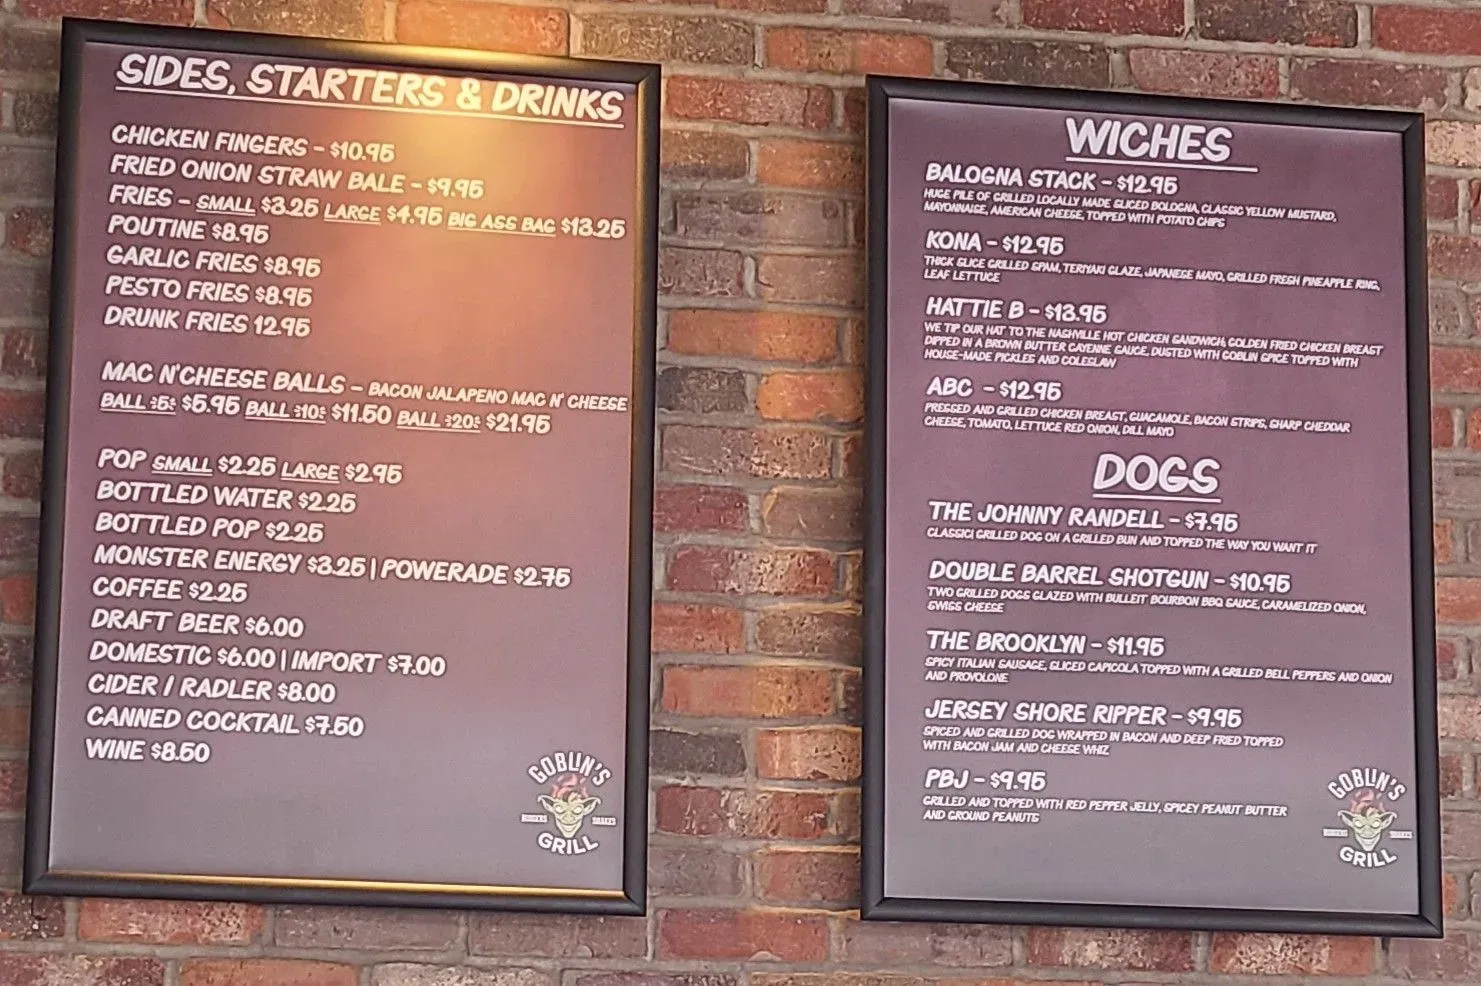 SIDES, STARTERS & DRINKS
CHICKEN FINGERS - $10.95
FRIED ONION STRAW BALE - $9.95
FRIES - SMALL $3.25 LARGE $4.95 BIG ASS BAG $13.25
POUTINE $8.95
GARLIC FRIES $8.95
PESTO FRIES $8.95
DRUNK FRIES 12.95
MAC N'CHEESE BALLS - BACON JALAPENO MAC N' CHEESE
BALL :5: $5.95 BALL :10: $11.50 BALL :20: $21.95
POP SMALL $2.25 LARGE $2.95
BOTTLED WATER $2.25
BOTTLED POP $2.25
MONSTER ENERGY $3.25 | POWERADE $2.75
COFFEE $2.25
DRAFT BEER $6.00
DOMESTIC $6.00 | IMPORT $7.00
CIDER / RADLER $8.00
CANNED COCKTAIL $7.50
WINE $8.50
GOBLIN'S
GRILL
WICHES
BALOGNA STACK - $12.95
HUGE PILE OF GRILLED LOCALLY MADE SLICED BOLOGNA, CLASSIC YELLOW MUSTARD,
MAYONNAISE, AMERICAN CHEESE, TOPPED WITH POTATO CHIPS
KONA - $12.95
THICK SLICE GRILLED SPAM, TERIYAKI GLAZE, JAPANESE MAYO, GRILLED FRESH PINEAPPLE RING,
LEAF LETTUCE
HATTIE B - $13.95
WE TIP OUR HAT TO THE NASHVILLE HOT CHICKEN SANDWICH, GOLDEN FRIED CHICKEN BREAST
DIPPED IN A BROWN BUTTER CAYENNE SAUCE, DUSTED WITH GOBLIN SPICE TOPPED WITH
HOUSE-MADE PICKLES AND COLESLAW
ABC - $12.95
PRESSED AND GRILLED CHICKEN BREAST, GUACAMOLE, BACON STRIPS, SHARP CHEDDAR
CHEESE, TOMATO, LETTUCE RED ONION, DILL MAYO
DOGS
THE JOHNNY RANDELL - $7.95
CLASSIC! GRILLED DOG ON A GRILLED BUN AND TOPPED THE WAY YOU WANT IT
DOUBLE BARREL SHOTGUN - $10.95
TWO GRILLED DOGS GLAZED WITH BULLEIT BOURBON BBQ SAUCE, CARAMELIZED ONION,
SWISS CHEESE
THE BROOKLYN - $11.95
SPICY ITALIAN SAUSAGE, SLICED CAPICOLA TOPPED WITH A GRILLED BELL PEPPERS AND ONION
AND PROVOLONE
JERSEY SHORE RIPPER - $9.95
SPICED AND GRILLED DOG WRAPPED IN BACON AND DEEP FRIED TOPPED
WITH BACON JAM AND CHEESE WHIZ
PBJ - $9.95
GRILLED AND TOPPED WITH RED PEPPER JELLY, SPICEY PEANUT BUTTER
AND GROUND PEANUTS
GOBLIN'S
GRILL